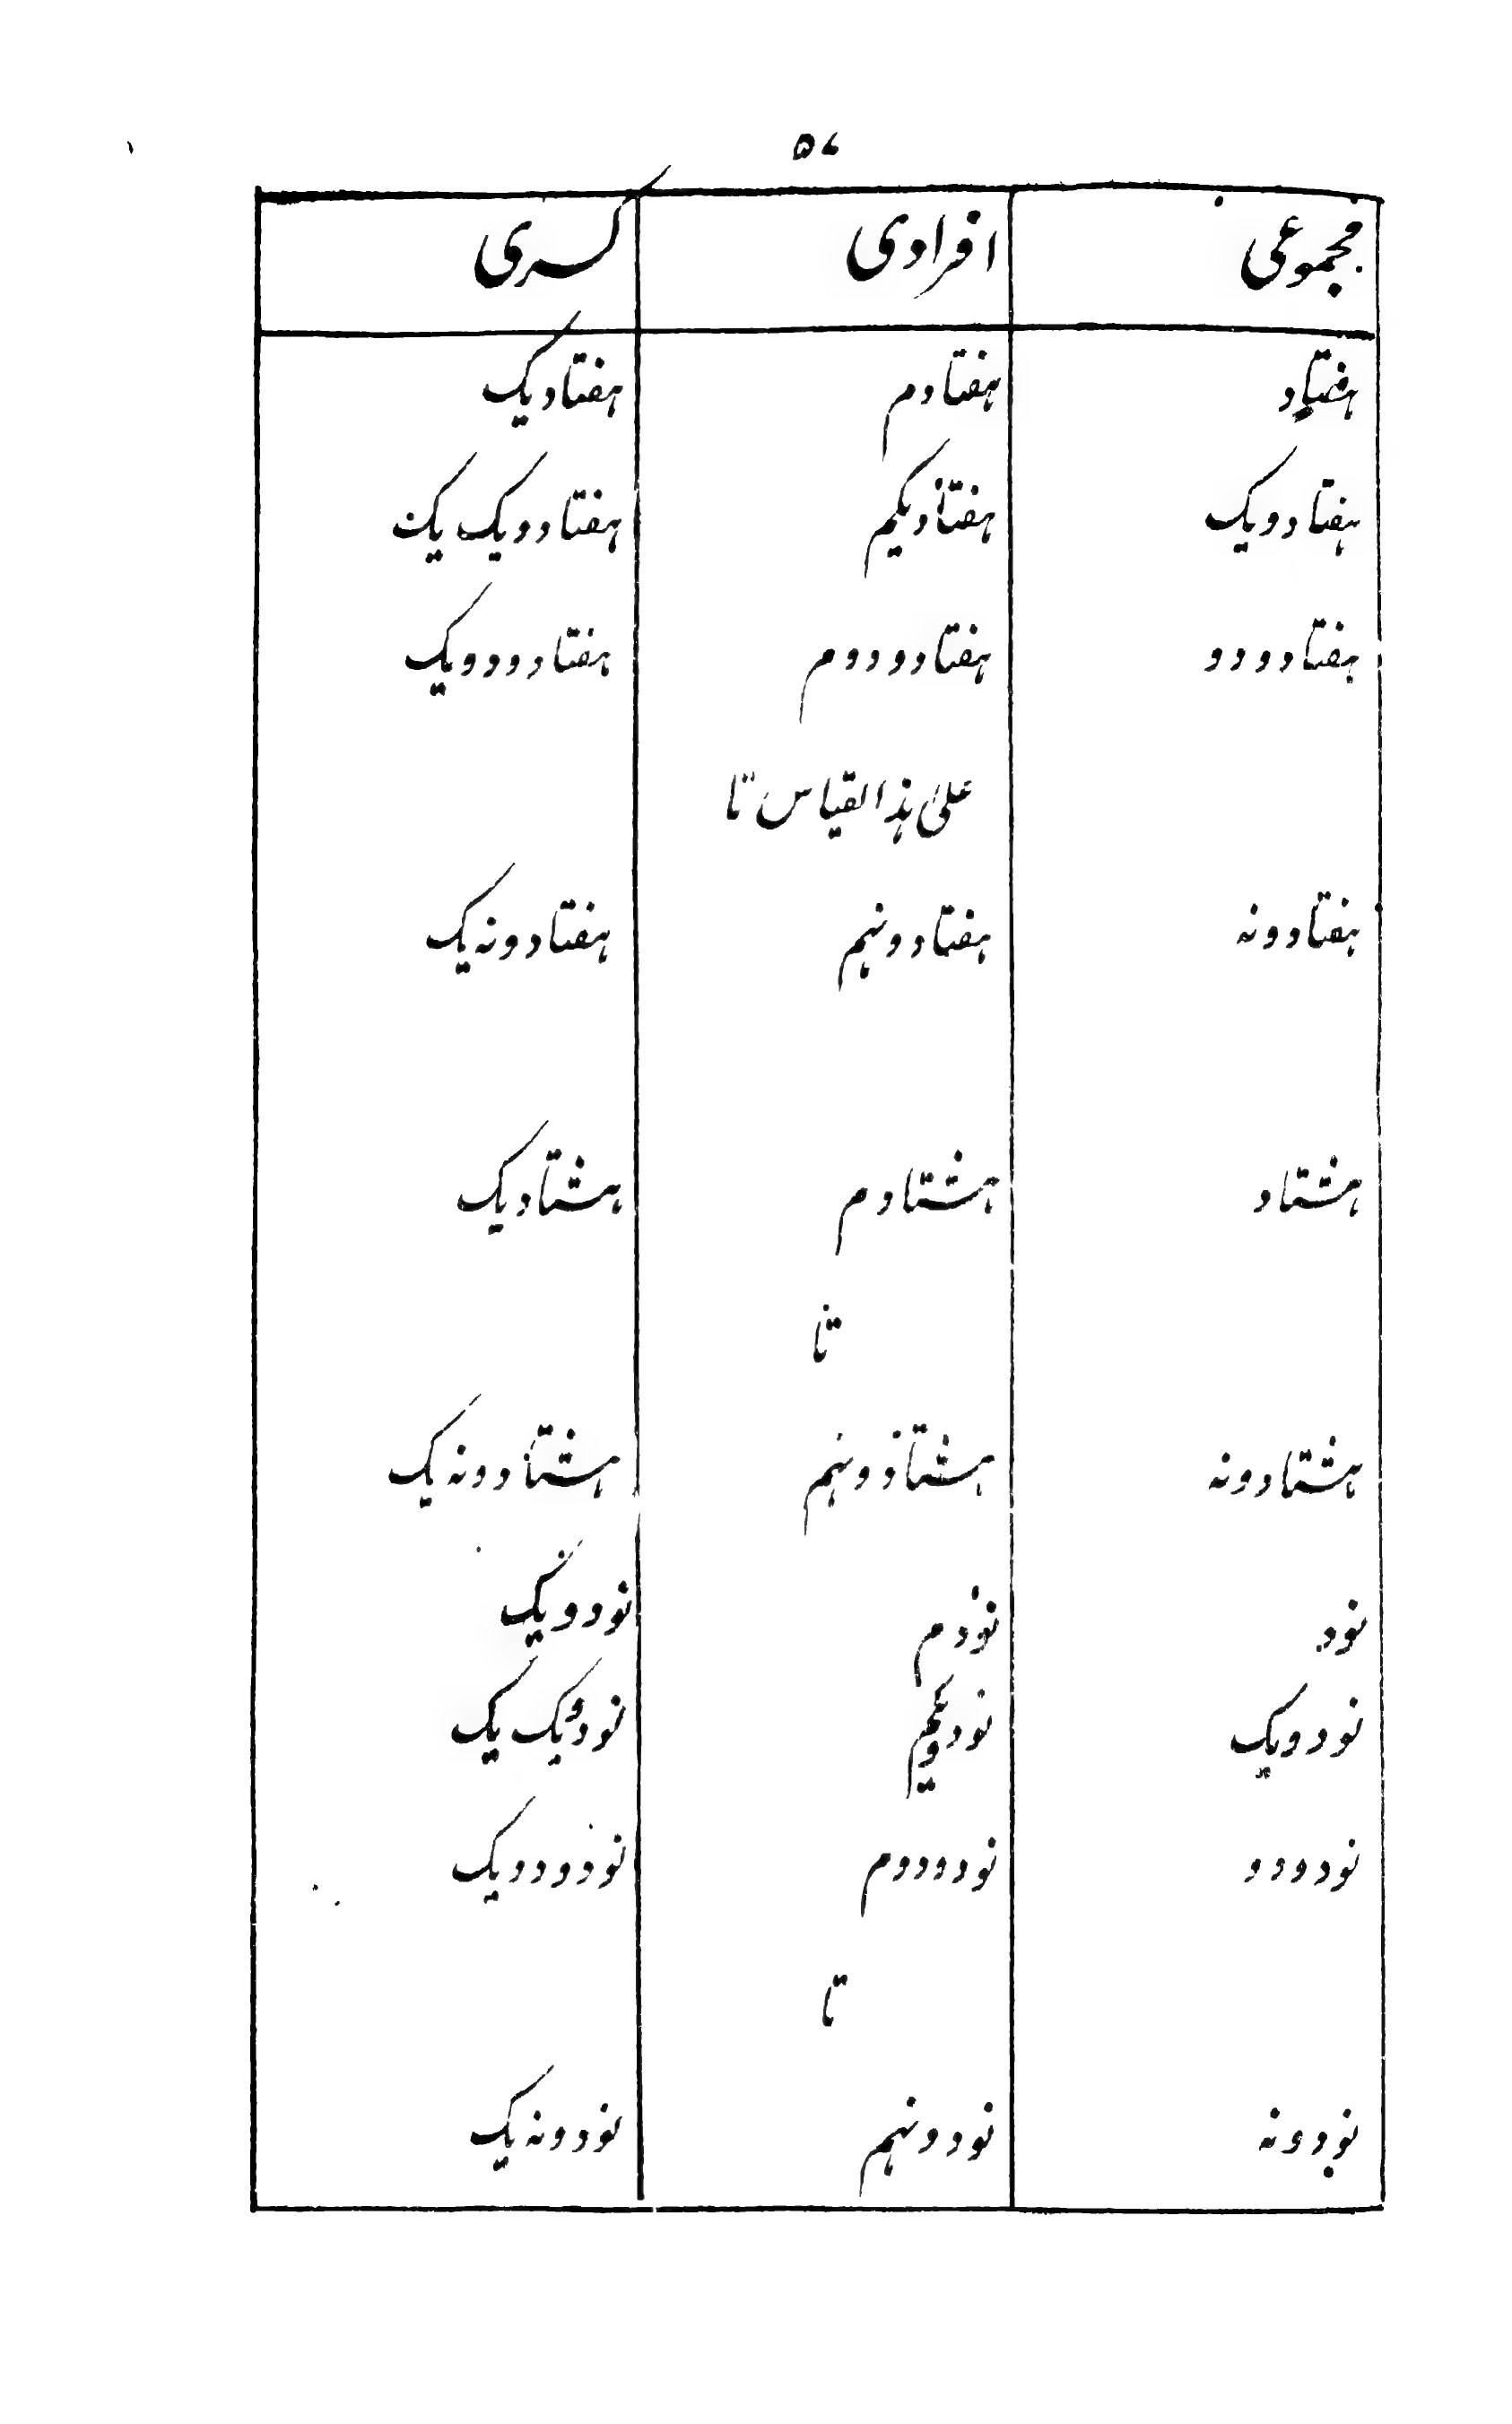 مجموعی افرادی کسری
ہفتاد ہفتادم ہفتادیک
ہفتادویک ہفتادیکم ہفتادویک یک
ہفتادودو ہفتادودوم ہفتادودویک
علیٰ ہذا القیاس تا
ہفتادونہ ہفتادونہم ہفتادونہ یک
ہشتاد ہشتادم ہشتادیک
تا
ہشتادونہ ہشتادونہم ہشتادونہ یک
نود نودم نودویک
نودویک نودویکم نودویک یک
نودودو نودودوم نودودویک
تا
نودونہ نودونہم نودونہ یک